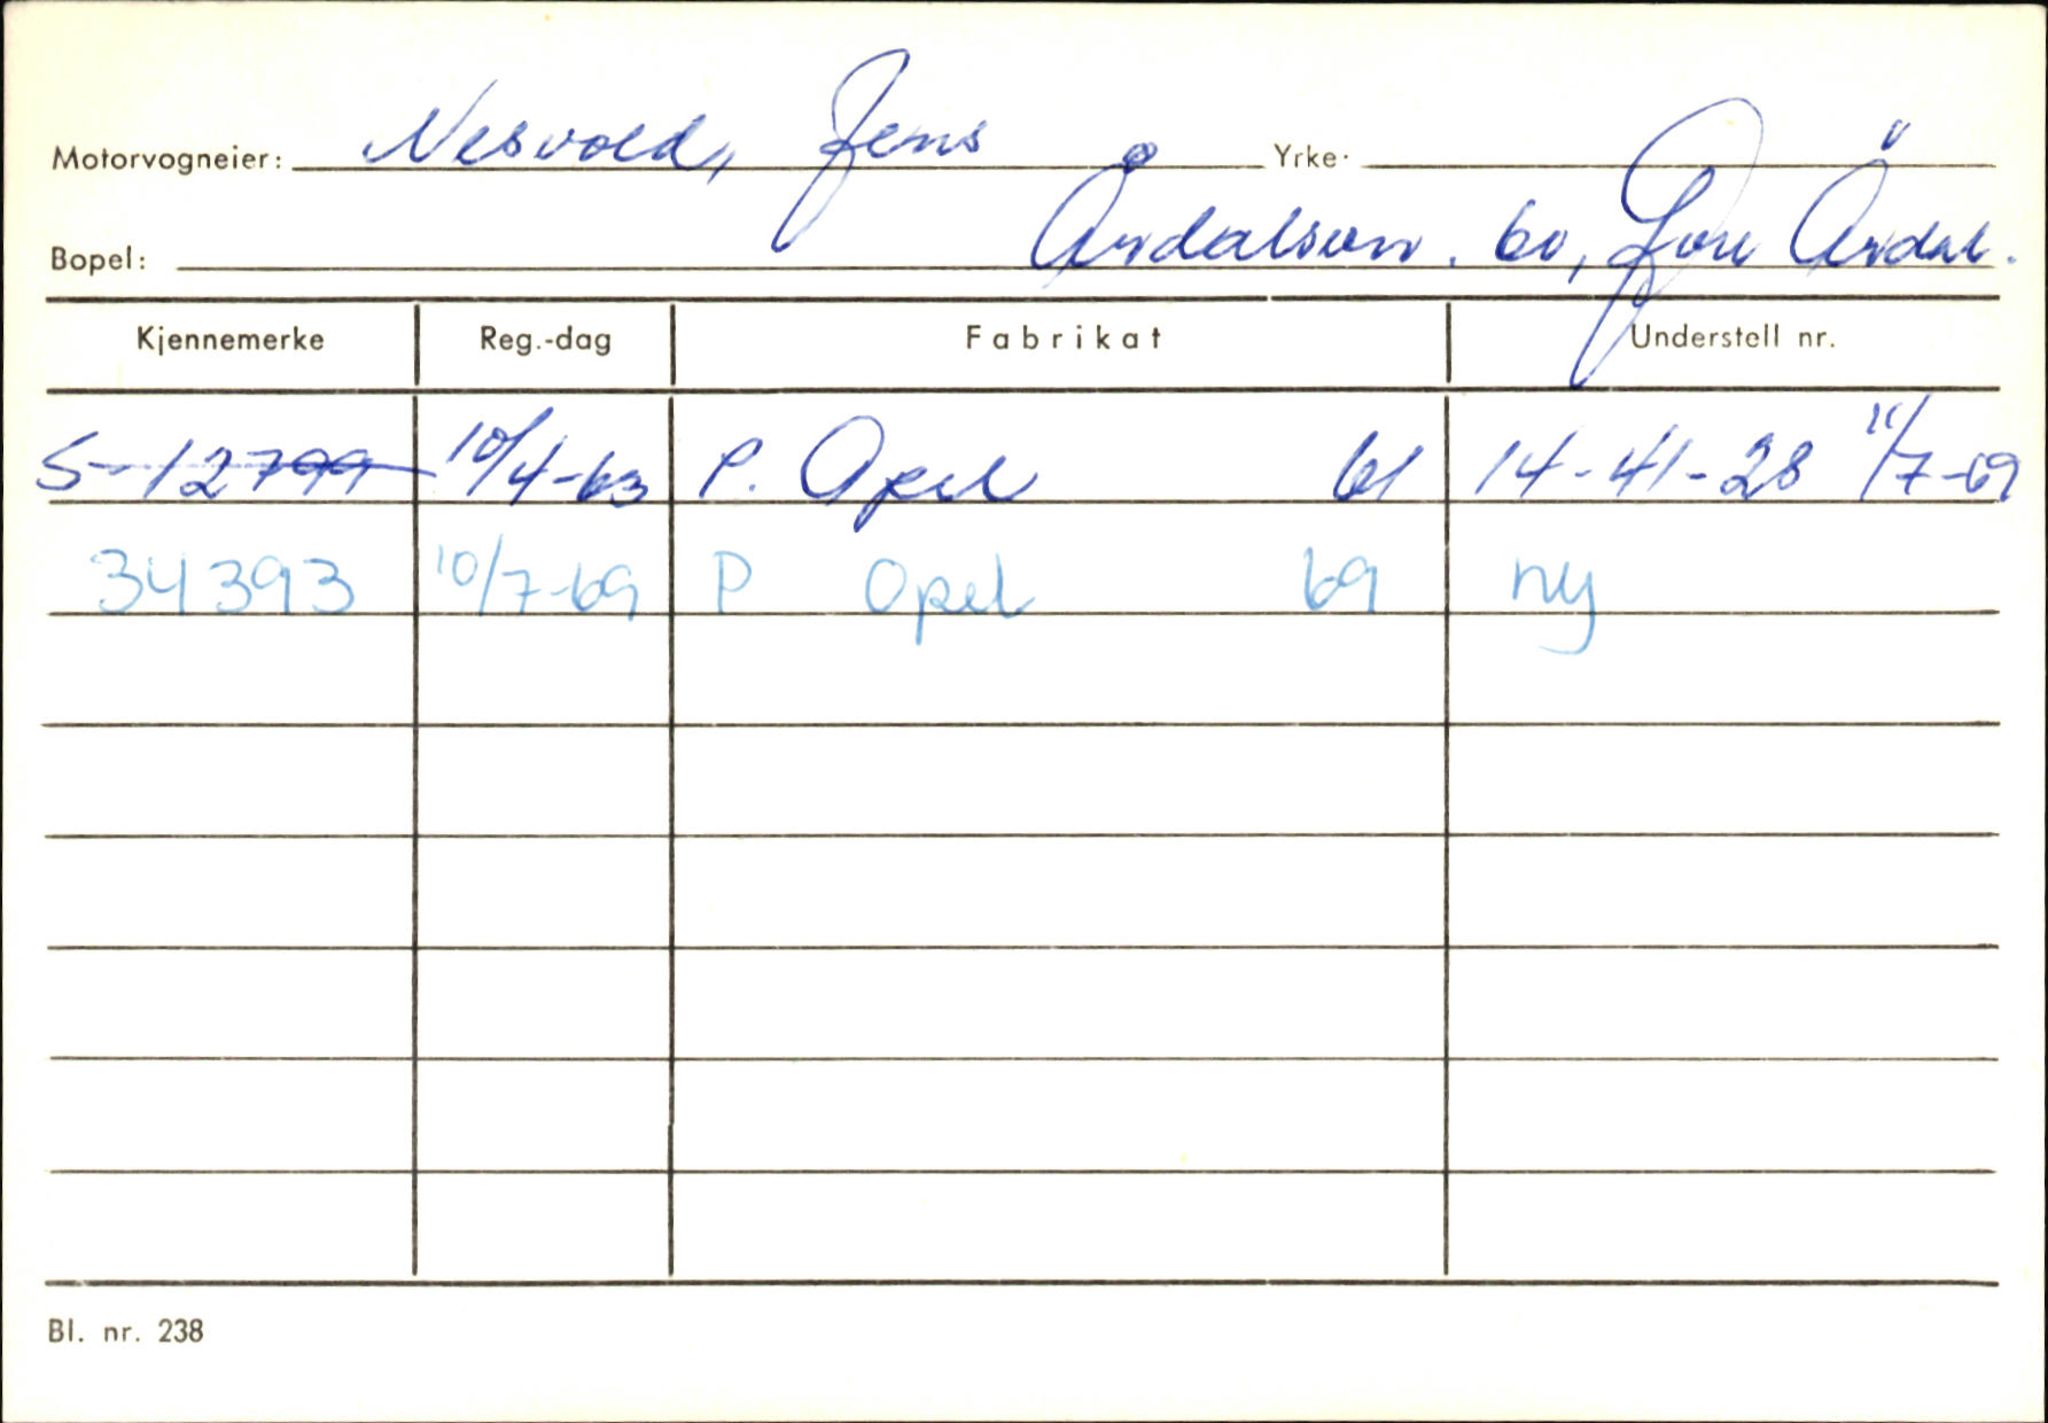 Motorvogneier: Nesvold, Jens Yrke:
Bopel: Årdalsvn. 60, Øvre Årdal.
Kjennemerke Reg.-dag Fabrikat Understell nr.
S-12799 10/4-63 P. Opel 61 14-41-28 11/7-69
34393 10/7-69 P Opel 69 ny
Bl. nr. 238